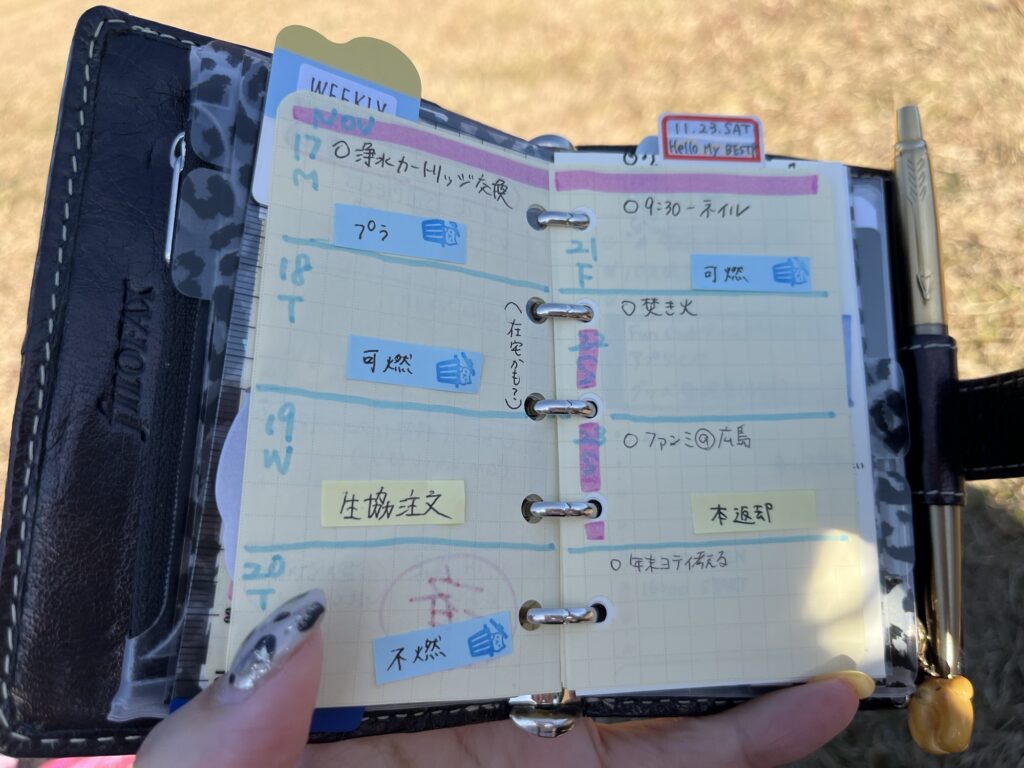 WEEKLY
Nov
17
M
○浄水カートリッジ交換
プラ
18
T
可燃
(在宅かも?)
19
W
生協注文
20
T
不燃
11.23.SAT
Hello My BEST
○9:30-ネイル
21
F
可燃
○焚き火
22
S
○ファンミ@広島
23
S
本返却
○年末ヨテイ考える